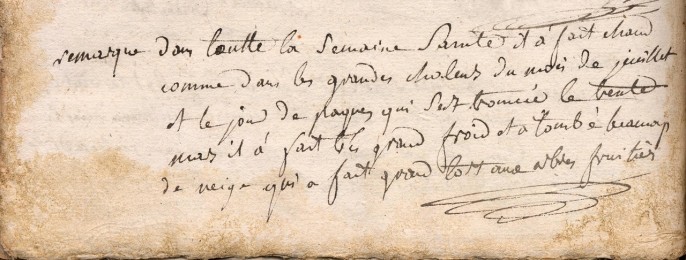 remarque dans toutte la Semaine Sainte it à fait chaud
comme dans les grandes chaleur du mois de juillet
et le jour de paques qui sest trouvée le trente
mars il à fait très grand froid et a tombé beaucoup
de neige qui a fait grand tort aux arbres fruitiés